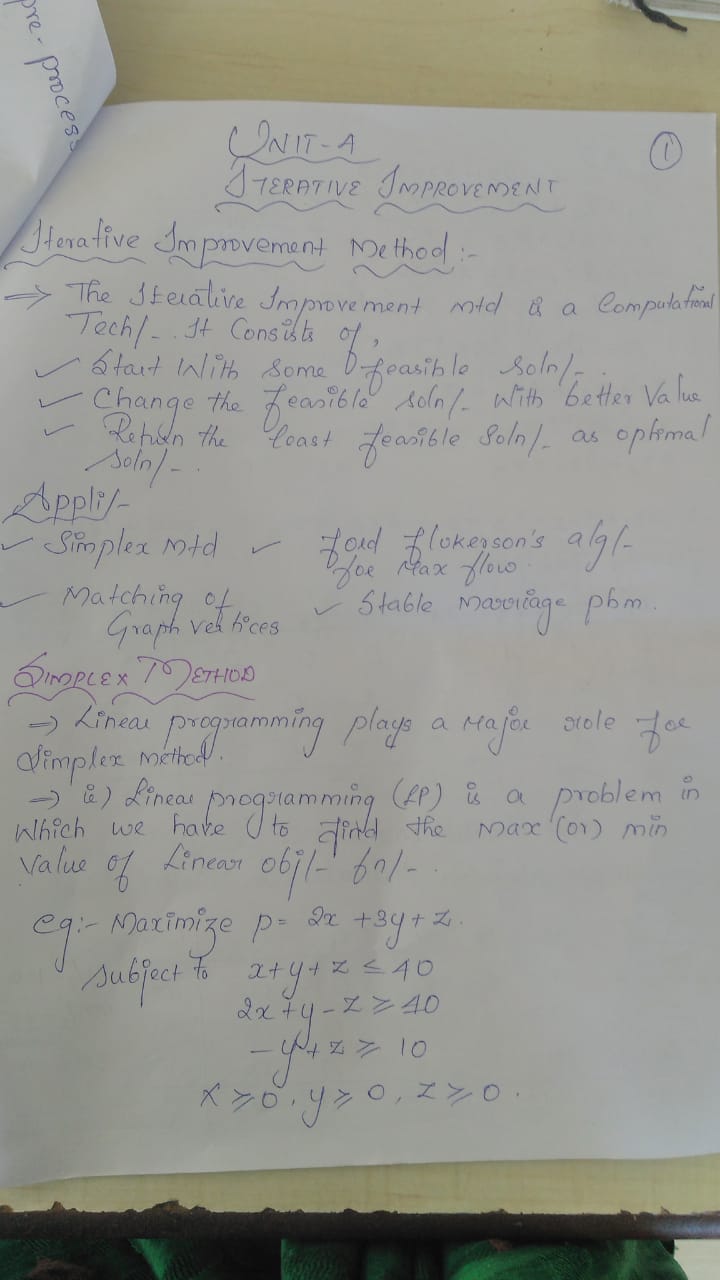 pre-process
①
UNIT-4
ITERATIVE IMPROVEMENT
Iterative Improvement Method :-
⇒ The Iterative Improvement mtd is a Computational
Tech/-. It Consists of,
✓ Start With Some feasible soln/-.
✓ Change the feasible soln/- With better Value
✓ Return the least feasible Soln/- as optimal
soln/-.
Appli/-
✓ Simplex mtd ✓ Ford flukerson's alg/-
for Max flow.
✓ Matching of ✓ Stable Marriage pbm.
Graph vertices
SIMPLEX METHOD
⇒ Linear programming plays a Major role for
Simplex Method.
⇒ ie) Linear programming (LP) is a problem in
Which we have to find the max (or) min
Value of Linear obj/- fn/-.
eg:- Maximize p= 2x +3y+z.
subject to x+y+z ≤ 40
2x+y-z ≥ 40
-y+z ≥ 10
x ≥ 0, y ≥ 0, z ≥ 0.